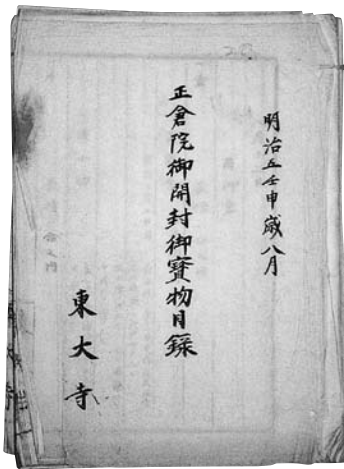 明治五壬申歳八月
正倉院御開封御寳物目録
東大寺